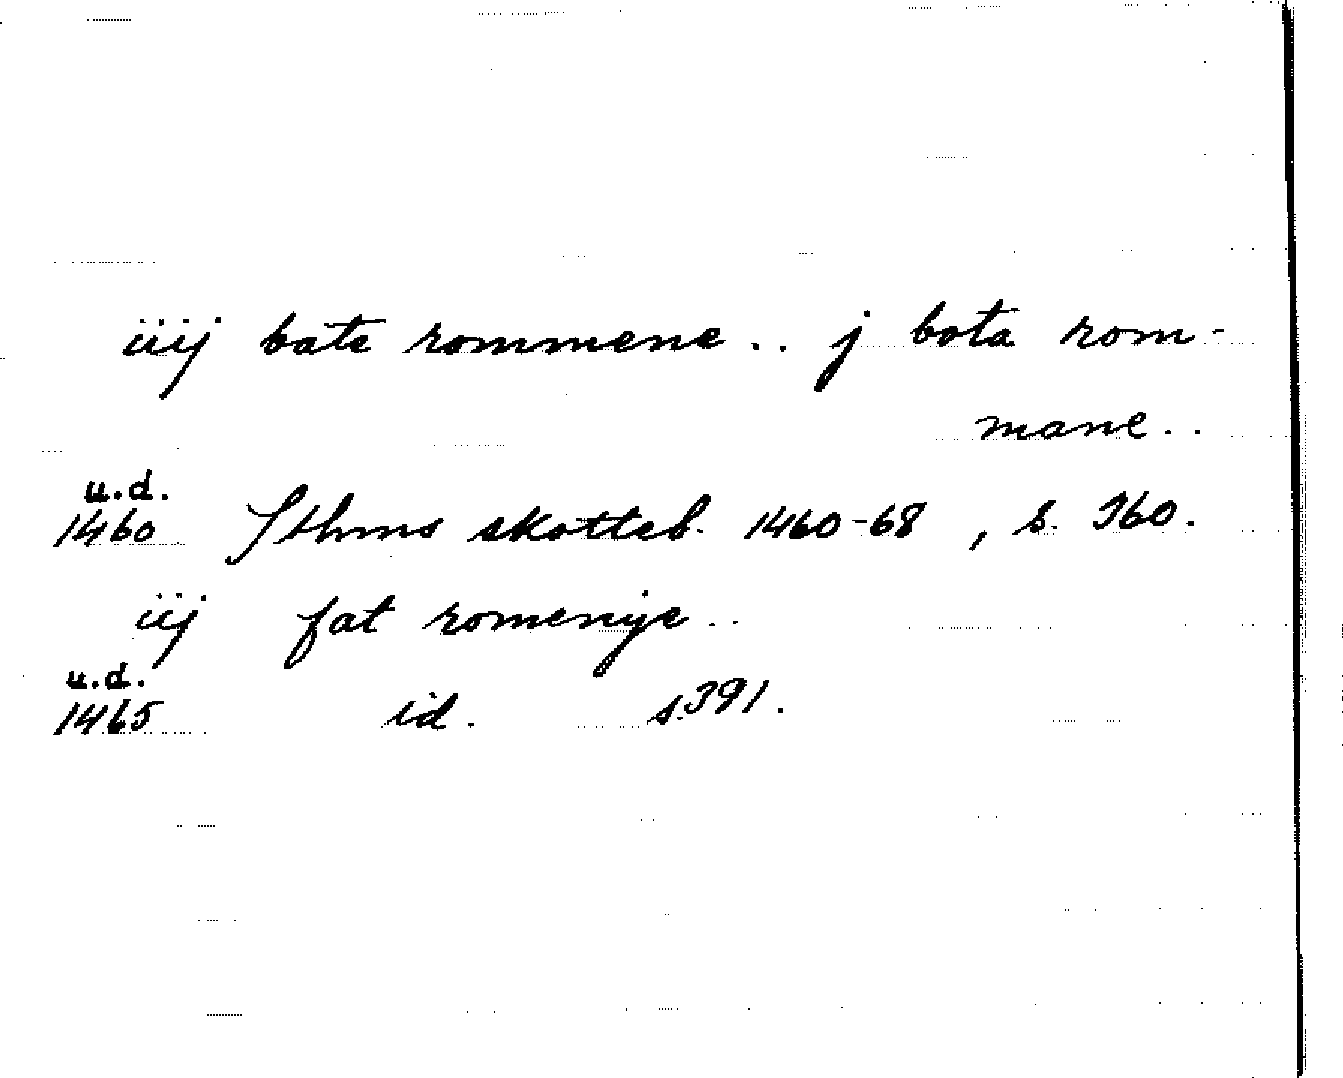 iiij bate rommene.. j bota rom-
mane..
u.d.
1460 Sthms skotteb. 1460-68, s. 360.
iij fat romenije..
u.d.
1465 id. s.391.